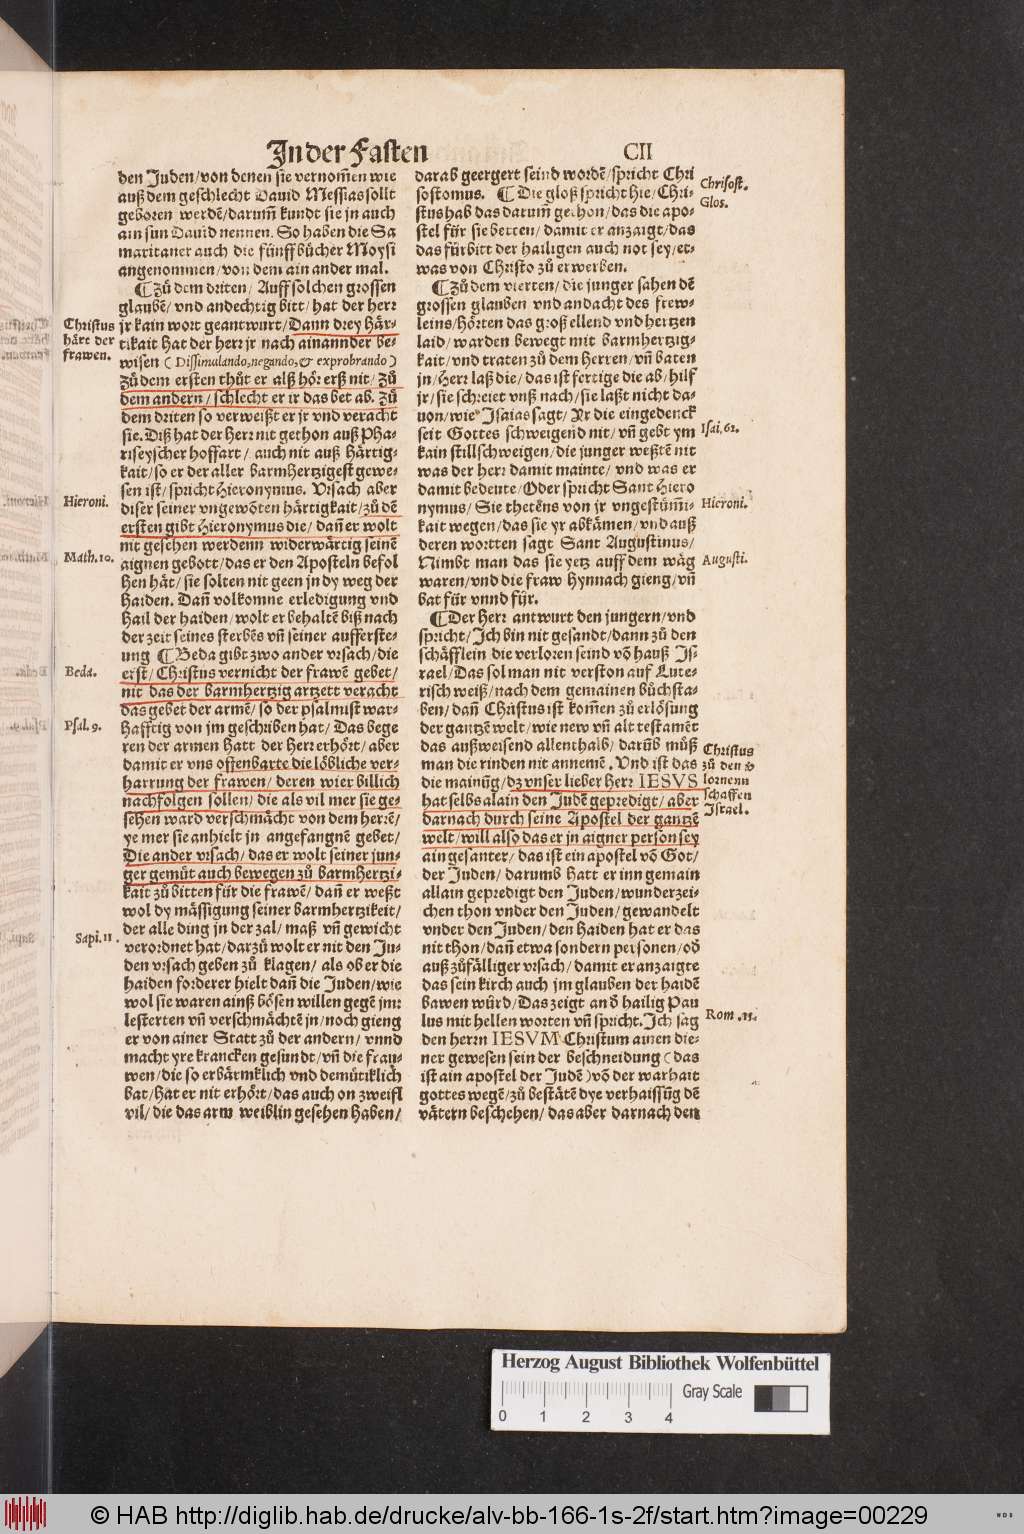 In der Fasten CII
den Juden/von denen sie vernom̃en wie
auß dem geschlecht Dauid Messias sollt
geboren werdẽ/darum̃ kundt sie jn auch
ain sun Dauid nennen. So haben die Sa
maritaner auch die fünff bücher Moysi
angenommen/von dem ain ander mal.
¶ Zů dem driten/ Auff solchen grossen
glaubẽ/ vnd andechtig bitt/ hat der herr
jr kain wort geantwurt/Dann drey här-
tikait hat der herr jr nach ainannder be-
wisen ( Dissimulando,negando,& exprobrando )
Zů dem ersten thůt er alß hör erß nit/ Zů
dem andern/ schlecht er ir das bet ab. Zů
dem driten so verweißt er jr vnd veracht
sie. Diß hat der Herr nit gethon auß Pha-
riseyscher hoffart/ auch nit auß härtig-
kait/so er der aller barmhertzigest gewe-
sen ist/ spricht Hieronymus. Vrsach aber
diser seiner vngewõten härtigkait/ zů dẽ
ersten gibt Hieronymus die/ dañ er wolt
nit gesehen werdenn widerwärtig seinẽ
aignen gebott/das er den Aposteln befol
hen hät/ sie solten nit geen jn dy weg der
Haiden. Dañ volkomne erledigung vnd
Hail der haiden/wolt er behaltẽ biß nach
der zeit seines sterbẽs vñ seiner aufferste-
ung ¶ Beda gibt zwo ander vrsach/die
erst/ Christus vernicht der frawẽ gebet/
nit das der barmhertzig artzett veracht
das gebet der armẽ/ so der psalmist war-
hafftig von im geschriben hat/ Das bege
ren der armen Hatt der Herr erhört/ aber
damit er vns offenbarte die löbliche ver-
harrung der frawen/ deren wier billich
nachfolgen sollen/ die als vil mer sie ge-
sehen ward verschmächt von dem herrẽ/
ye mer sie anhielt jn angefangnẽ gebet/
Die ander vrsach/ das er wolt seiner jun-
ger gemüt auch bewegen zů barmhertzi-
kait zů bitten für die frawẽ/ dañ er weßt
wol dy mässigung seiner barmhertzikeit/
der alle ding jn der zal/ maß vñ gewicht
verordnet hat/darzů wolt er nit den Ju-
den vrsach geben zů klagen/ als ob er die
haiden forderer hielt dañ die Juden/wie
wol sie waren ainß bösen willen gegẽ jm:
lesterten vñ verschmächtẽ jn/noch gieng
er von ainer Statt zů der andern/ vnnd
macht yre krancken gesundt/vñ die frau-
wen/die so erbärmklich vnd demütiklich
bat/hat er nit erhört/das auch on zweifl
vil/ die das arm weiblin gesehen haben/
Christus
härt der
frawen.
Hieroni.
Math.10.
Beda.
Psal.9.
Sapi.11.
darab geergert seind wordẽ/spricht Chri
sostomus. ¶ Die gloß spricht hie/ Chri-
stus hab das darum̃ gethon/das die apo-
stel für sie betten/ damit er anzaigt/das
das fürbitt der hailigen auch not sey/et-
was von Christo zů erwerben.
¶ Zů dem vierten/ die junger sahen dẽ
grossen glauben vnd andacht des frew-
leins/Hörten das groß ellend vnd hertzen
laid/ warden bewegt mit barmhertzig-
kait/vnd traten zů dem Herren/ vñ baten
jn/Herr laß die/das ist fertige die ab/hilf
jr/sie schreiet vnß nach/sie laßt nicht da-
uon/wie Isaias sagt/ Yr die eingedenck
seit Gottes schweigend nit/ vñ gebt ym
kain stillschweigen/die junger weßtẽ nit
was der herr damit mainte/ vnd was er
damit bedeute/Oder spricht Sant Hiero
nymus/ Sie thetẽns von jr vngestüm̃i-
kait wegen/das sie yr abkämen/vnd auß
deren wortten sagt Sant Augustinus/
Nimbt man das sie yetz auff dem wäg
waren/vnd die fraw Hynnach gieng/vñ
bat für vnnd für.
¶ Der Herr antwurt den jungern/vnd
spricht/Ich bin nit gesandt/dann zů den
schäfflein die verloren seind võ hauß Js-
rael/Das sol man nit verston auf Lute-
risch weiß/nach dem gemainen bůchsta-
ben/ dañ Christus ist kom̃en zů erlösung
der gantzẽ welt/ wie new vñ alt testamẽt
das außweisend allenthalb/ darũb můß
man die rinden nit annemẽ. Vnd ist das
die mainũg/ dz vnser lieber Herr IESVS
hat selbs alain den Judẽ gepredigt/ aber
darnach durch seine Apostel der gantzẽ
welt/ will also das er jn aigner person sey
ain gesanter/ das ist ein apostel võ Got/
der Juden/ darumb Hatt er inn gemain
allain gepredigt den Juden/wunderzei-
chen thon vnder den Juden/ gewandelt
vnder den Juden/ den Haiden hat er das
nit thon/dañ etwa sondern personen/od̃
auß zůfälliger vrsach/ damit er anzaigte
das sein kirch auch jm glauben der haidẽ
bawen würd/Das zeigt an d̃ hailig Pau
lus mit hellen worten vñ spricht. Ich sag
den herrn IESVM Christum ainen die-
ner gewesen sein der beschneidung ( das
ist ain apostel der Judẽ ) võ der warhait
gottes wegẽ/ zů bestätẽ dye verhaissũg dẽ
vätern beschehen/ das aber darnach den
Chrisost.
Glos.
Isai.61.
Hieroni.
Augusti.
Christus
zů den v̄
lornenn
schaffen
Israel.
Rom.15.
Herzog August Bibliothek Wolfenbüttel
Gray Scale
0 1 2 3 4
© HAB http://diglib.hab.de/drucke/alv-bb-166-1s-2f/start.htm?image=00229